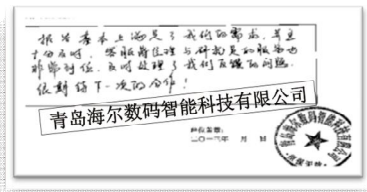 报告基本上满足了我们的需求，并且
十分及时，客服经理与研究员的服务也
非常到位，及时处理了我们反馈的问题。
很期待下一次的合作！
青岛海尔数码智能科技有限公司
二〇一三年 月 日